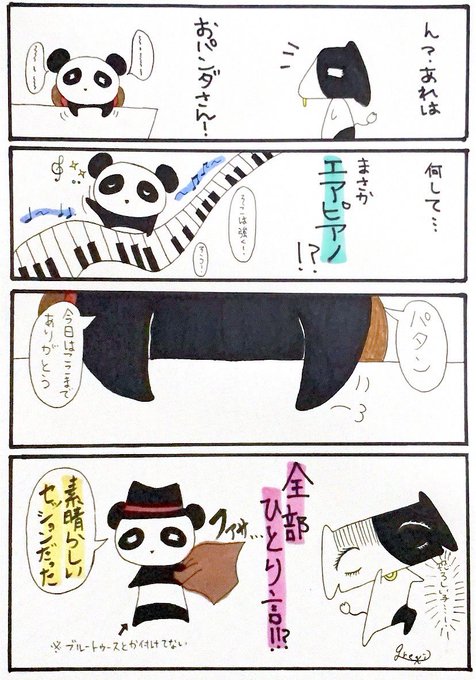 ん？あれは
おパンダさん！
〜〜〜
〜〜〜
何して…
まさか
エアピアノ
!?
ここは強く…
そっ…
パタン
今日はここまで
ありがとう
恐ろしい子……
全部
ひとり言!!?
ファサ…
素晴らしい
セッションだった
※ブルートゥースとか付けてない